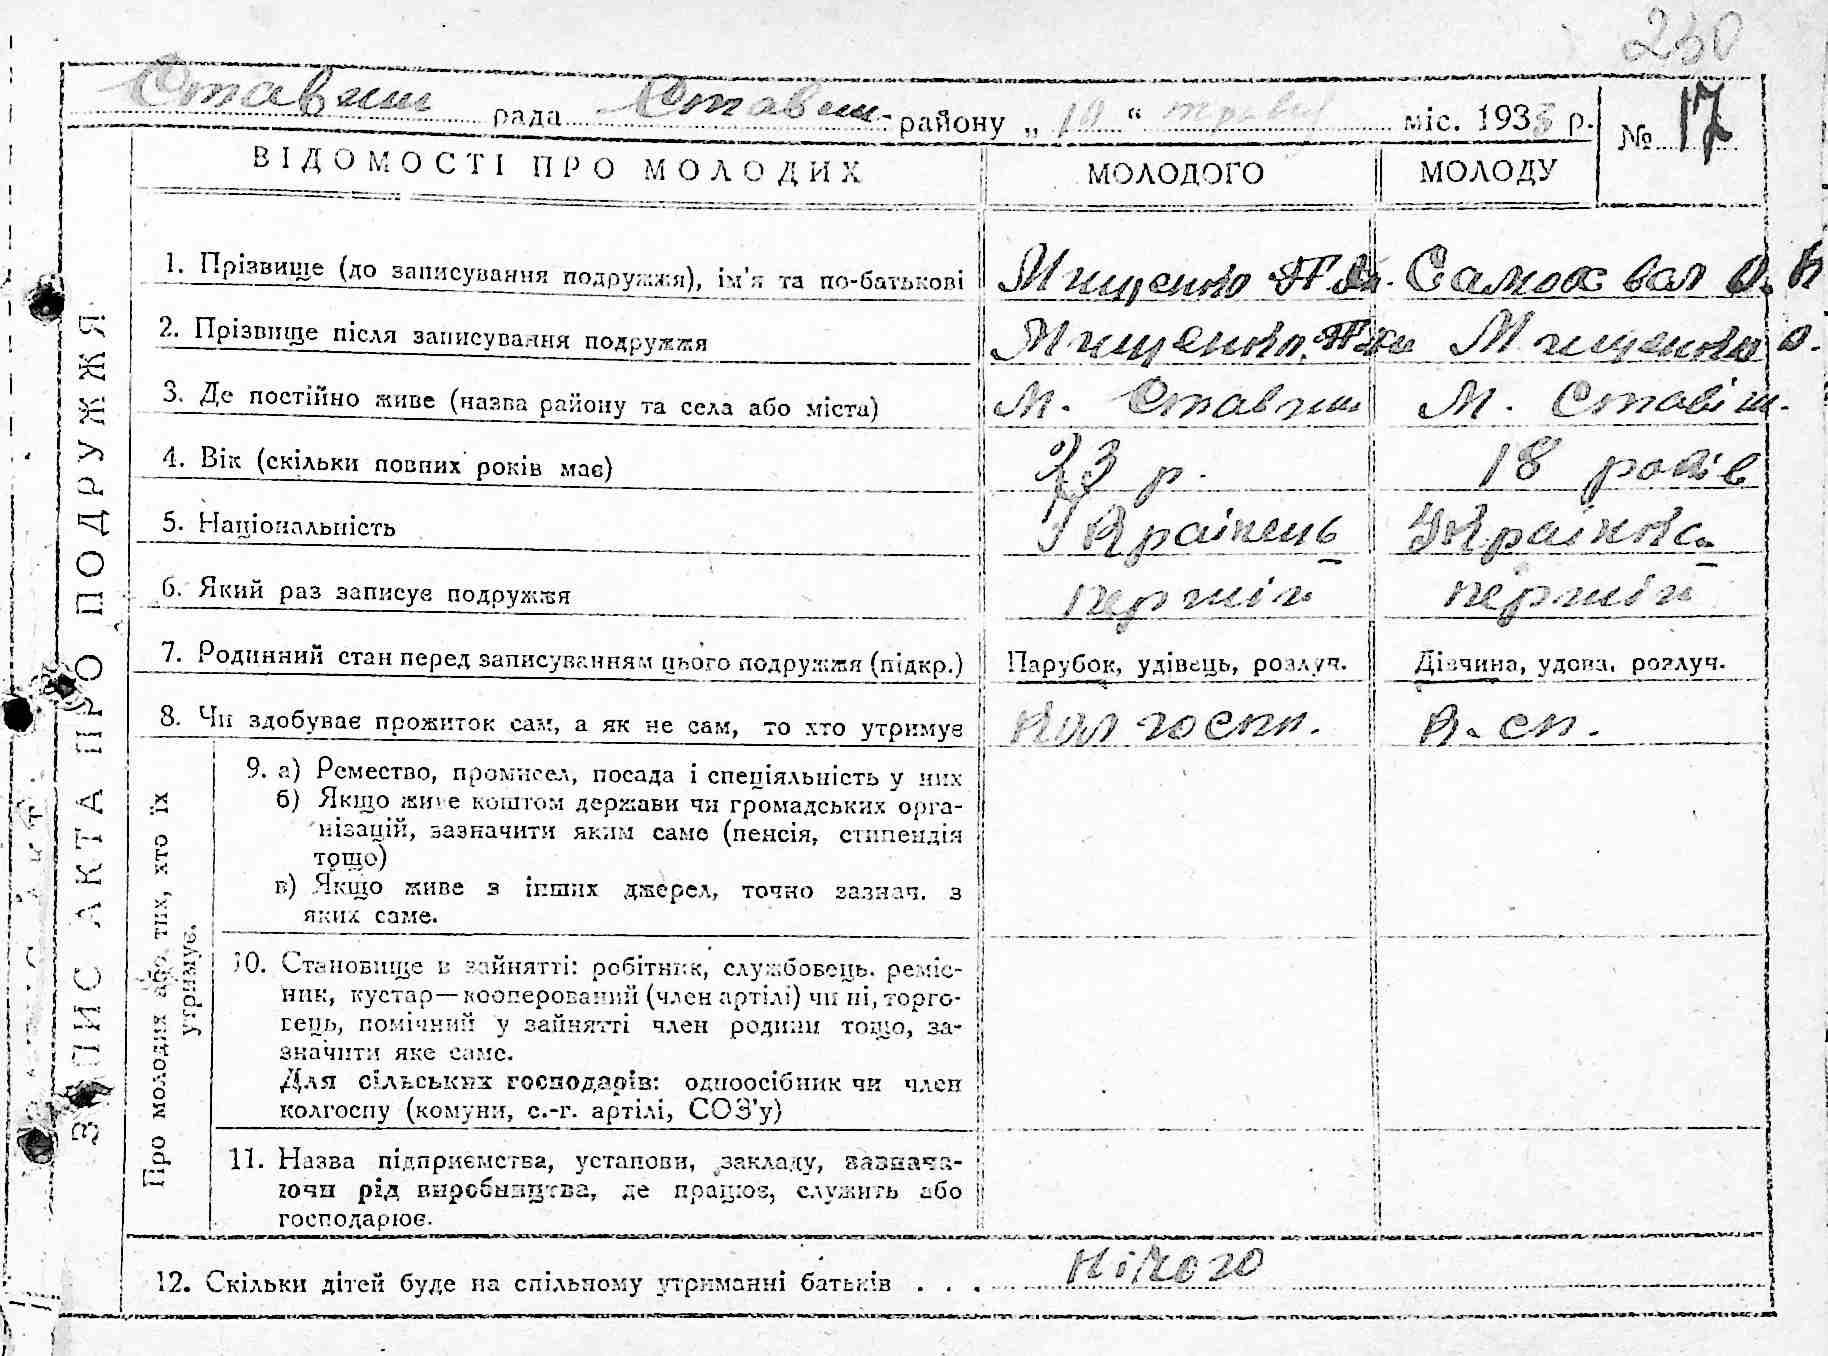 230
Ставищ рада Ставищ. району „ 10 “ травня міс. 1933 р. № 17
ВІДОМОСТІ ПРО МОЛОДИХ МОЛОДОГО МОЛОДУ
1. Прізвище (до записування подружжя), ім'я та по-батькові Мищенко Самохвал О. К
2. Прізвище після записування подружжя Мищенко Мищенко О.
3. Де постійно живе (назва району та села або міста) м. Ставищ м. Ставіщ.
4. Вік (скільки повних років має) 23 р. 18 років
5. Національність Українець Українка
6. Який раз записує подружжя першій першій
7. Родинний стан перед записуванням цього подружжя (підкр.) Парубок, удівець, розлуч. Дівчина, удова, розлуч.
8. Чи здобуває прожиток сам, а як не сам, то хто утримує Колгосп.
9. а) Ремество, промисел, посада і спеціяльність у них
б) Якщо живе коштом держави чи громадських орга-
нізацій, зазначити яким саме (пенсія, стипендія
тощо)
в) Якщо живе з інших джерел, точно зазнач. з
яких саме.
10. Становище в зайнятті: робітник, службовець, реміс-
ник, кустар—кооперований (член артілі) чи ні, торго-
вець, помічний у зайнятті член родини тощо, за-
значити яке саме.
Для сільських господарів: одноосібник чи член
колгоспу (комуни, с.-г. артілі, СОЗ'у)
11. Назва підприємства, установи, закладу, зазнача-
ючи рід виробництва, де працює, служить або
господарює.
12. Скільки дітей буде на спільному утриманні батьків . . . нікого
ЗАПИС АКТА ПРО ПОДРУЖЖЯ
Про молодих або тих, хто їх
утримує.